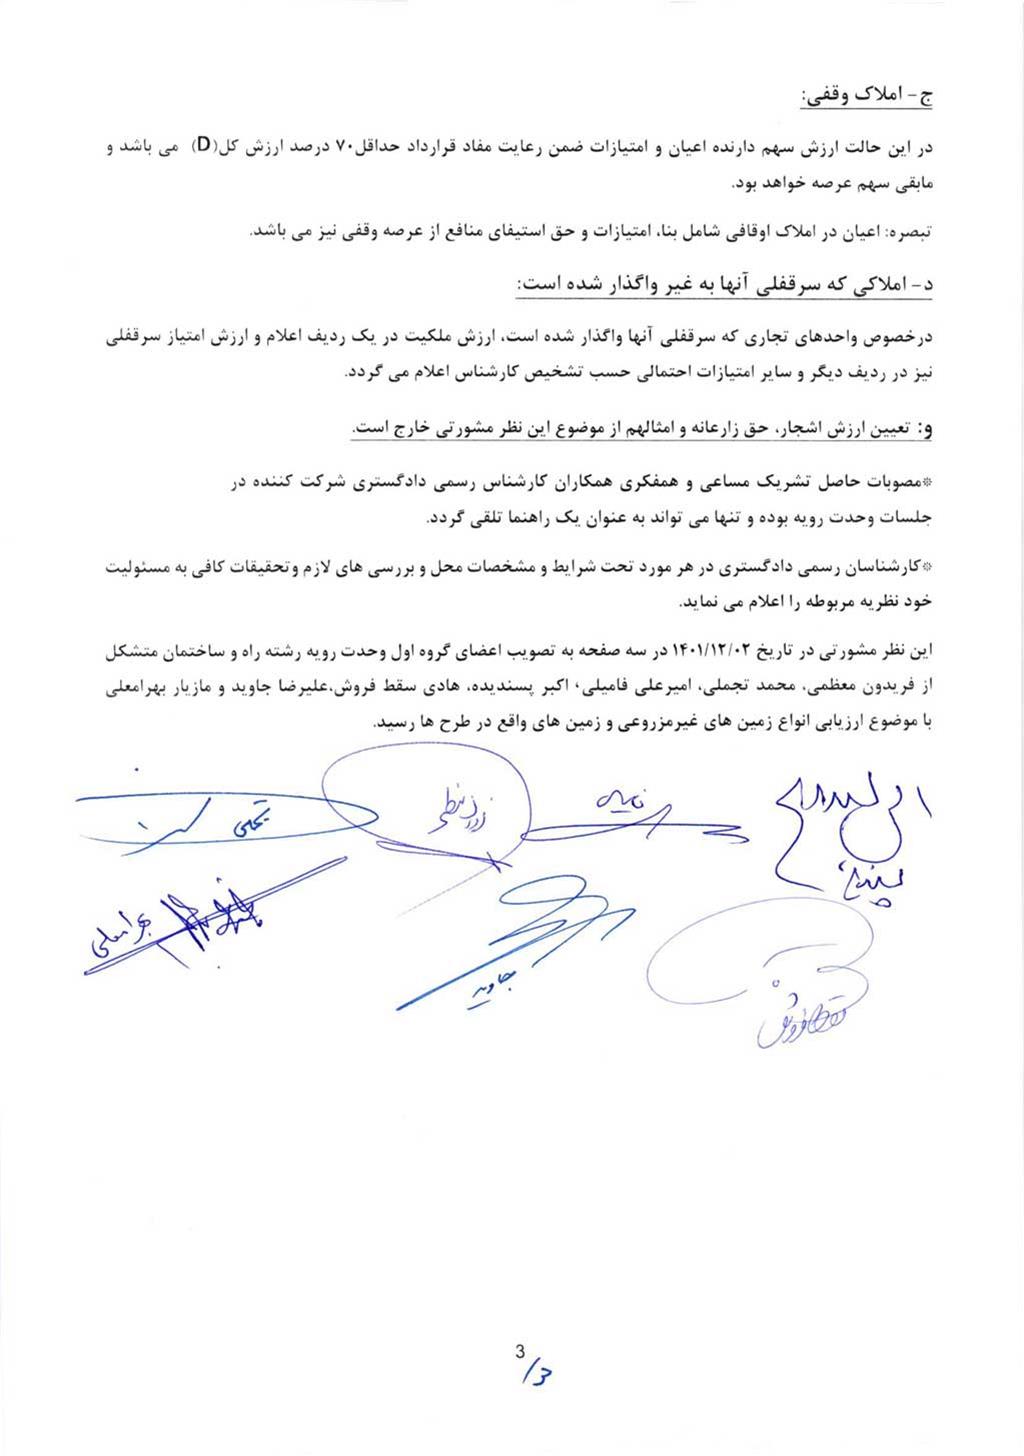 ج- املاک وقفی:
در این حالت ارزش سهم دارنده اعیان و امتیازات ضمن رعایت مفاد قرارداد حداقل۷۰ درصد ارزش کل(D) می باشد و
مابقی سهم عرصه خواهد بود.
تبصره: اعیان در املاک اوقافی شامل بنا، امتیازات و حق استیفای منافع از عرصه وقفی نیز می باشد.
د- املاکی که سرقفلی آنها به غیر واگذار شده است:
درخصوص واحدهای تجاری که سرقفلی آنها واگذار شده است، ارزش ملکیت در یک ردیف اعلام و ارزش امتیاز سرقفلی
نیز در ردیف دیگر و سایر امتیازات احتمالی حسب تشخیص کارشناس اعلام می گردد.
و: تعیین ارزش اشجار، حق زارعانه و امثالهم از موضوع این نظر مشورتی خارج است.
*مصوبات حاصل تشریک مساعی و همفکری همکاران کارشناس رسمی دادگستری شرکت کننده در
جلسات وحدت رویه بوده و تنها می تواند به عنوان یک راهنما تلقی گردد.
*کارشناسان رسمی دادگستری در هر مورد تحت شرایط و مشخصات محل و بررسی های لازم وتحقیقات کافی به مسئولیت
خود نظریه مربوطه را اعلام می نماید.
این نظر مشورتی در تاریخ ۱۴۰۱/۱۲/۰۲ در سه صفحه به تصویب اعضای گروه اول وحدت رویه رشته راه و ساختمان متشکل
از فریدون معظمی، محمد تجملی، امیرعلی فامیلی، اکبر پسندیده، هادی سقط فروش،علیرضا جاوید و مازیار بهرامعلی
با موضوع ارزیابی انواع زمین های غیرمزروعی و زمین های واقع در طرح ها رسید.
تجملی
جاوید
بهرامعلی
سقط فروش
3
/3